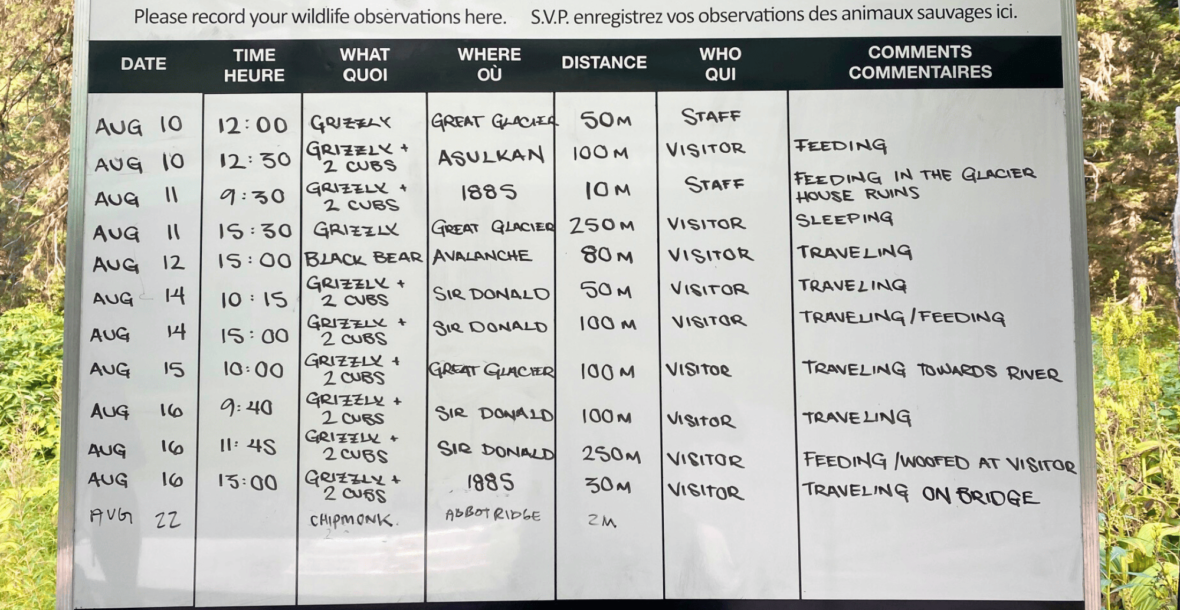 Please record your wildlife observations here. S.V.P. enregistrez vos observations des animaux sauvages ici.
DATE TIME HEURE WHAT QUOI WHERE OÙ DISTANCE WHO QUI COMMENTS COMMENTAIRES
AUG 10 12:00 GRIZZLY GREAT GLACIER 50M STAFF
AUG 10 12:30 GRIZZLY + 2 CUBS ASULKAN 100M VISITOR FEEDING
AUG 11 9:30 GRIZZLY + 2 CUBS 1885 10M STAFF FEEDING IN THE GLACIER HOUSE RUINS
AUG 11 15:30 GRIZZLY GREAT GLACIER 250M VISITOR SLEEPING
AUG 12 15:00 BLACK BEAR AVALANCHE 80M VISITOR TRAVELING
AUG 14 10:15 GRIZZLY + 2 CUBS SIR DONALD 50M VISITOR TRAVELING
AUG 14 15:00 GRIZZLY + 2 CUBS SIR DONALD 100M VISITOR TRAVELING/FEEDING
AUG 15 10:00 GRIZZLY + 2 CUBS GREAT GLACIER 100M VISITOR TRAVELING TOWARDS RIVER
AUG 16 9:40 GRIZZLY + 2 CUBS SIR DONALD 100M VISITOR TRAVELING
AUG 16 11:45 GRIZZLY + 2 CUBS SIR DONALD 250M VISITOR FEEDING/WOOFED AT VISITOR
AUG 16 13:00 GRIZZLY + 2 CUBS 1885 30M VISITOR TRAVELING ON BRIDGE
AUG 22 CHIPMONK. ABBOT RIDGE 2M